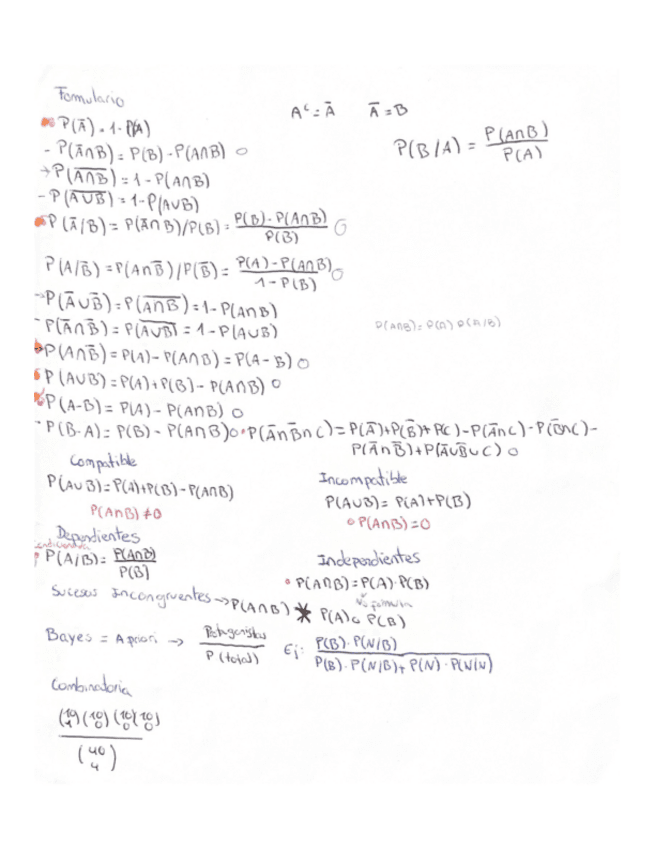 Formulario
Aᶜ = Ā    Ā = B
P(Ā) = 1 - P(A)
P(B/A) = P(A∩B) / P(A)
- P(Ā∩B) = P(B) - P(A∩B)
→ P(A̅∩̅B̅) = 1 - P(A∩B)
- P(A̅∪̅B̅) = 1 - P(A∪B)
P(Ā/B) = P(Ā∩B)/P(B) = P(B) - P(A∩B) / P(B)
P(A/B̄) = P(A∩B̄)/P(B̄) = P(A) - P(A∩B) / 1 - P(B)
→ P(Ā∪B̄) = P(A̅∩̅B̅) = 1 - P(A∩B)
- P(Ā∩B̄) = P(A̅∪̅B̅) = 1 - P(A∪B)
P(A∩B) = P(A) P(A/B)
P(A∩B̄) = P(A) - P(A∩B) = P(A - B)
P(A∪B) = P(A) + P(B) - P(A∩B)
P(A-B) = P(A) - P(A∩B)
- P(B-A) = P(B) - P(A∩B)
P(Ā∩B̄∩C) = P(Ā) + P(B̄) + P(C) - P(Ā∩C) - P(B̄∩C) -
P(Ā∩B̄) + P(Ā∪B̄∪C)
Compatible
P(A∪B) = P(A) + P(B) - P(A∩B)
P(A∩B) ≠ 0
Incompatible
P(A∪B) = P(A) + P(B)
P(A∩B) = 0
Dependientes
P(A/B) = P(A∩B) / P(B)
Independientes
P(A∩B) = P(A) · P(B)
Sucesos Incongruentes → P(A∩B) * P(A) o P(B)
Bayes = A priori → Protagonistas / P(total)
Ej: P(B) · P(N/B) / P(B) · P(N/B) + P(N) · P(N/N)
Combinatoria
(10 1) (10 0) (10 0) (10 0)
(40 4)